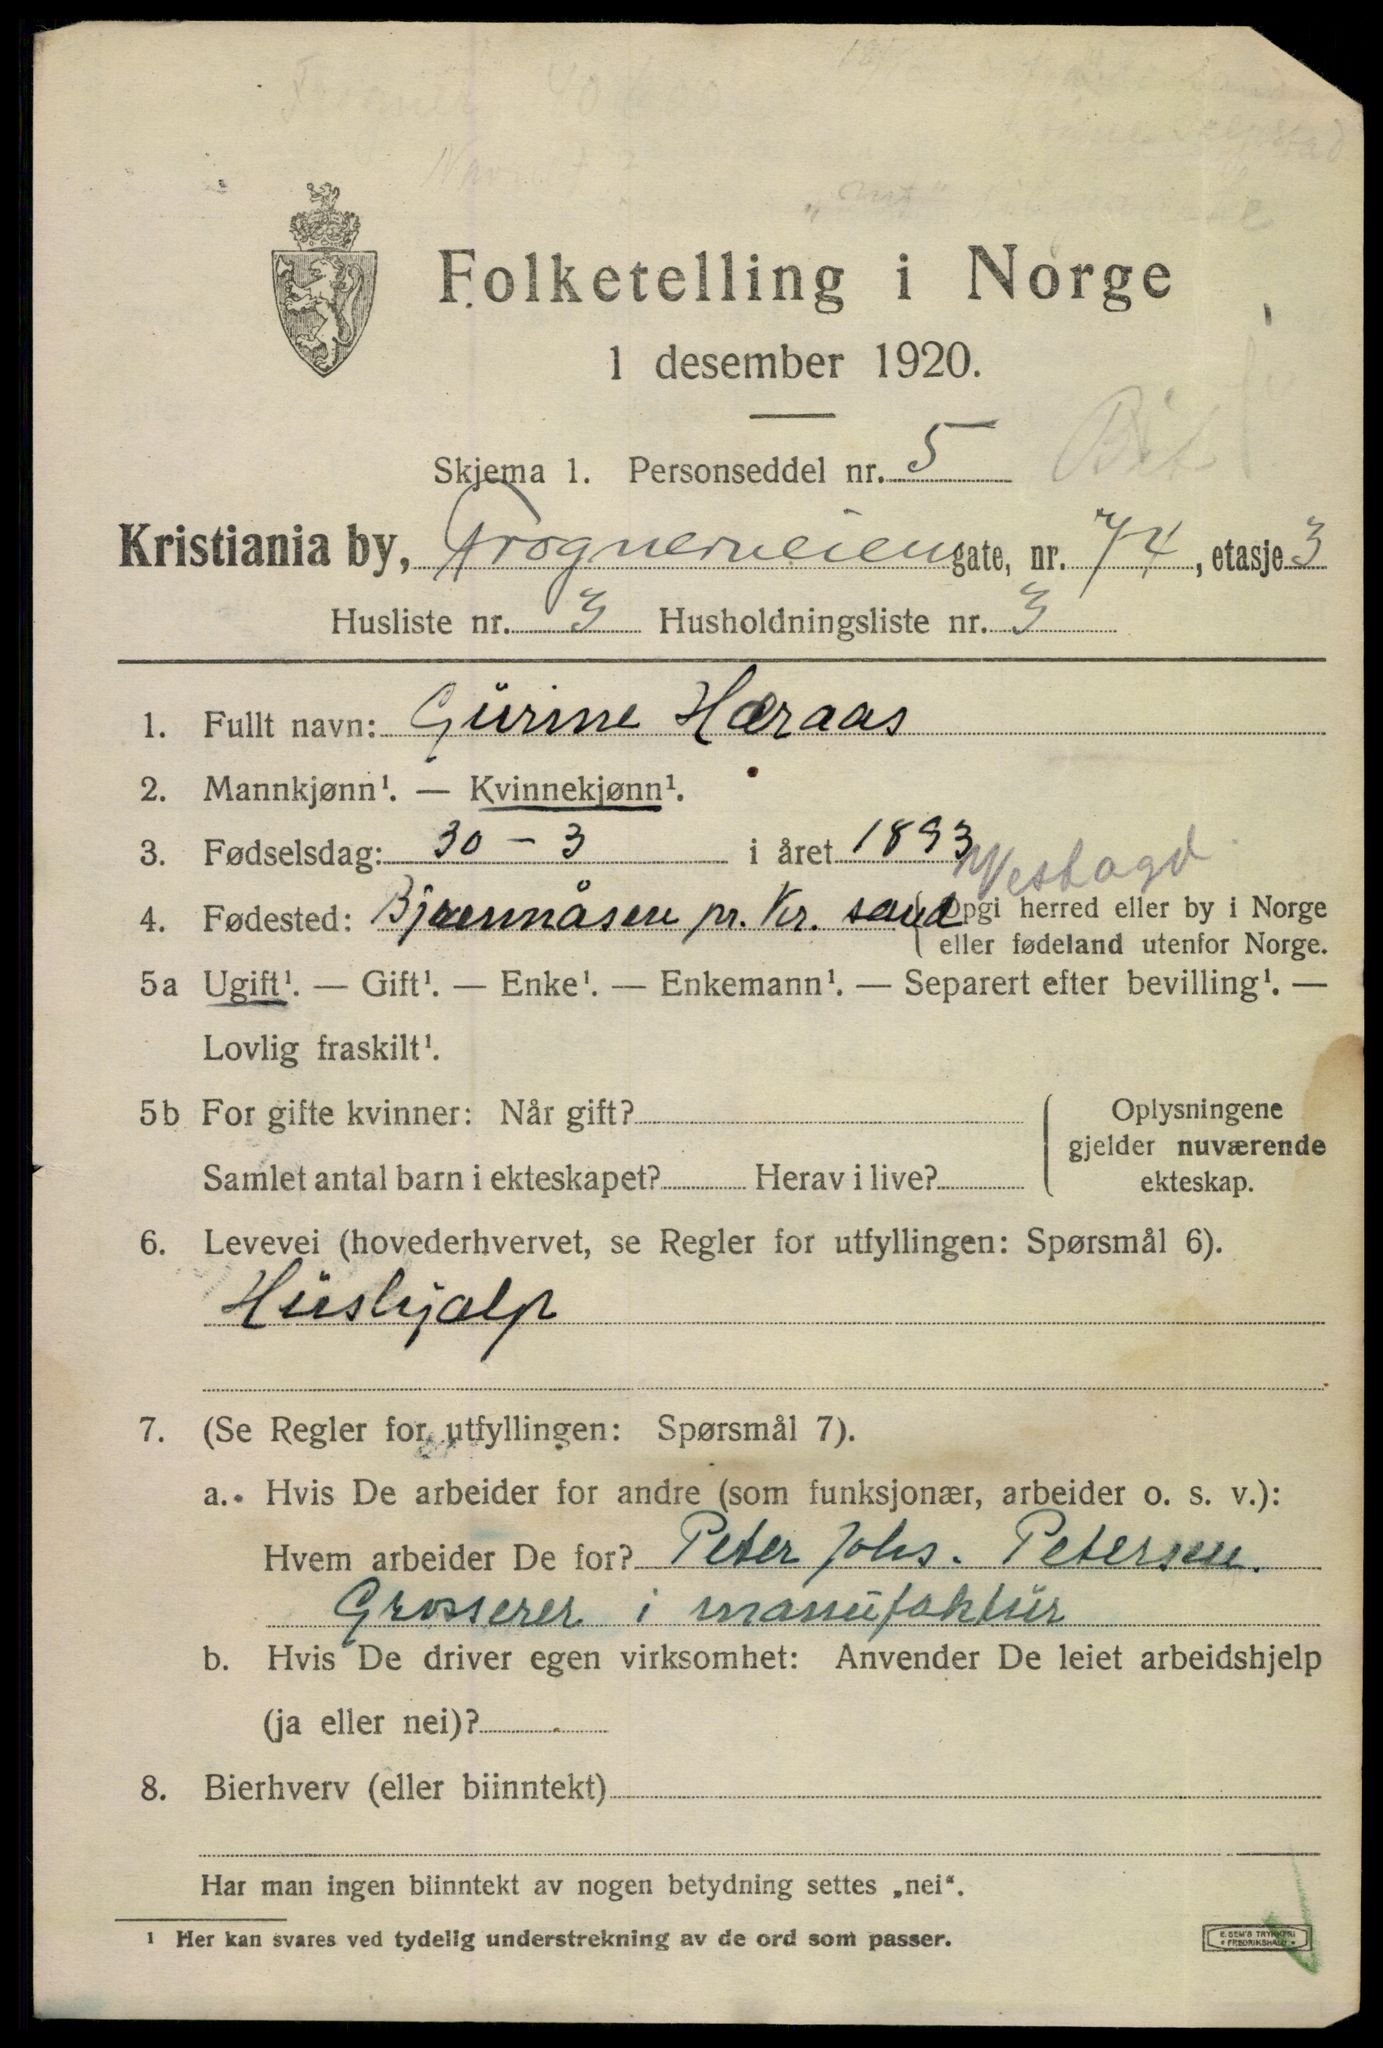 Folketelling i Norge
1 desember 1920.
Skjema 1. Personseddel nr. 5
Kristiania by, Frognerveien gate, nr. 74, etasje 3
Husliste nr. 3 Husholdningsliste nr. 3
1. Fullt navn: Gurine Hæraas
2. Mannkjønn¹. — Kvinnekjønn¹.
3. Fødselsdag: 30 - 3 i året 1893
Vestagd.
4. Fødested: pr. Kr. sand (Opgi herred eller by i Norge
eller fødeland utenfor Norge.
5a Ugift¹. — Gift¹. — Enke¹. — Enkemann¹. — Separert efter bevilling¹. —
Lovlig fraskilt¹.
5b For gifte kvinner: Når gift?
Samlet antal barn i ekteskapet? Herav i live?
Oplysningene
gjelder nuværende
ekteskap.
6. Levevei (hovederhvervet, se Regler for utfyllingen: Spørsmål 6).
Hushjælp
7. (Se Regler for utfyllingen: Spørsmål 7).
a. Hvis De arbeider for andre (som funksjonær, arbeider o. s. v.):
Hvem arbeider De for? Peter Johs. Petersen.
Grosserer i manufaktur
b. Hvis De driver egen virksomhet: Anvender De leiet arbeidshjelp
(ja eller nei)?
8. Bierhverv (eller biinntekt)
Har man ingen biinntekt av nogen betydning settes „nei“.
¹ Her kan svares ved tydelig understrekning av de ord som passer.
E. SEM'S TRYKKERI
FREDRIKSHALD